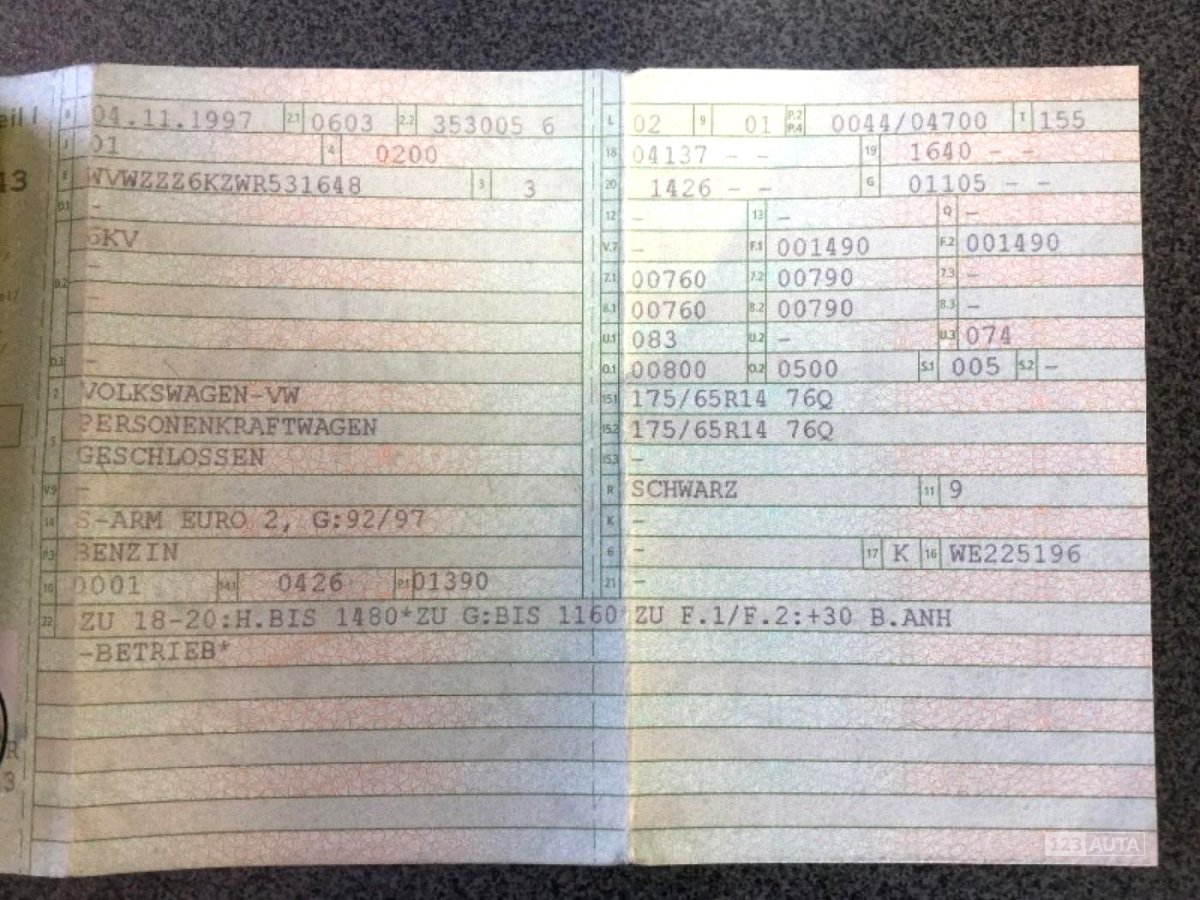 B 04.11.1997 2.1 0603 2.2 353005 6 L 02 9 01 P.2 P.4 0044/04700 T 155
J 01 4 0200 18 04137 – – 19 1640 – –
E WVWZZZ6KZWR531648 3 3 20 1426 – – G 01105 – –
D.1 – 12 – 13 – Q –
6KV V.7 – F.1 001490 F.2 001490
D.2 – 7.1 00760 7.2 00790 7.3 –
– 8.1 00760 8.2 00790 8.3 –
U.1 083 U.2 – U.3 074
D.3 – O.1 00800 O.2 0500 S.1 005 S.2 –
2 VOLKSWAGEN-VW 15.1 175/65R14 76Q
5 PERSONENKRAFTWAGEN 15.2 175/65R14 76Q
GESCHLOSSEN 15.3 –
V.9 – R SCHWARZ 11 9
14 S-ARM EURO 2, G:92/97 K –
P.3 BENZIN 6 – 17 K 16 WE225196
10 0001 14.1 0426 P.1 01390 21 –
22 ZU 18-20:H.BIS 1480*ZU G:BIS 1160*ZU F.1/F.2:+30 B.ANH
-BETRIEB*
123 AUTA